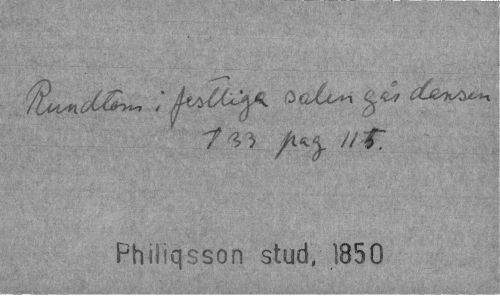 Rundtom i festliga salen går dansen
T 33 pag 115.
Philiqsson stud, 1850